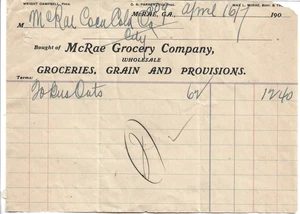 WRIGHT CAMPBELL, Pres. MAX L. McRAE, Secy. & Tr.
McRAE, GA. April 16/7 190
M McRae Coca Cola Co
City
Bought of McRae Grocery Company,
WHOLESALE
GROCERIES, GRAIN AND PROVISIONS.
Terms:
20 Bus Oats 62 12 40